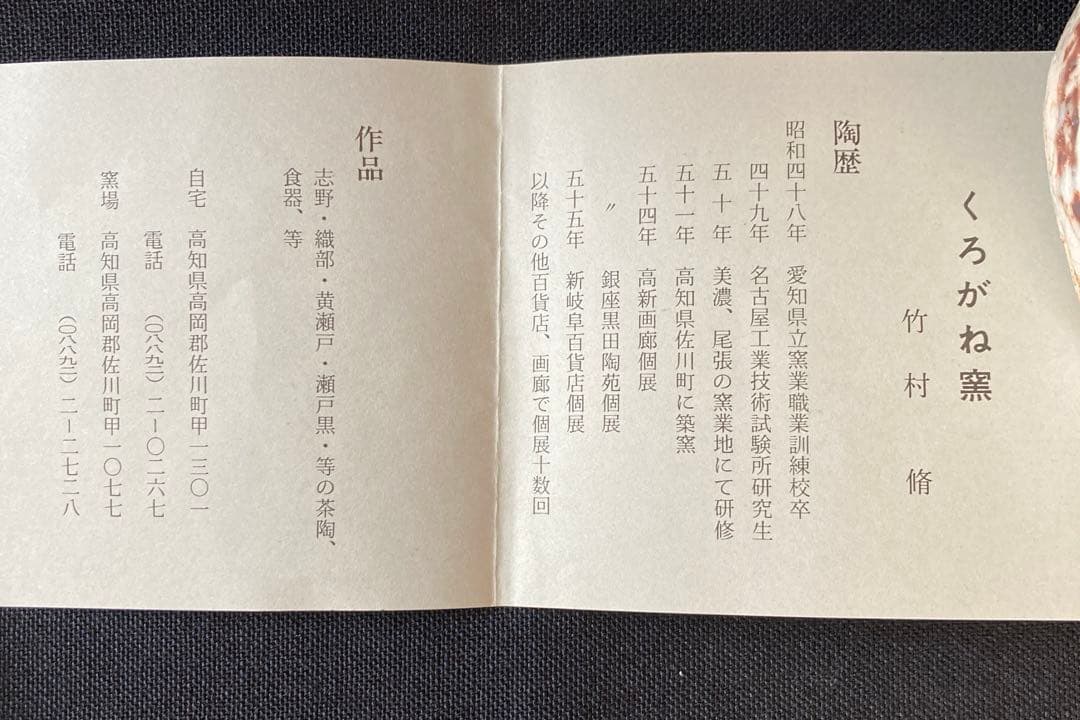 くろがね窯
竹村 脩
陶歴
昭和四十八年 愛知県立窯業職業訓練校卒
四十九年 名古屋工業技術試験所研究生
五十年 美濃、尾張の窯業地にて研修
五十一年 高知県佐川町に築窯
五十四年 高新画廊個展
〃 銀座黒田陶苑個展
五十五年 新岐阜百貨店個展
以降その他百貨店、画廊で個展十数回
作品
志野・織部・黄瀬戸・瀬戸黒・等の茶陶、
食器、等
自宅 高知県高岡郡佐川町甲一三〇一
電話 (〇八八九二) 二ー〇二六七
窯場 高知県高岡郡佐川町甲一〇七七
電話 (〇八八九二) 二ー二七二八